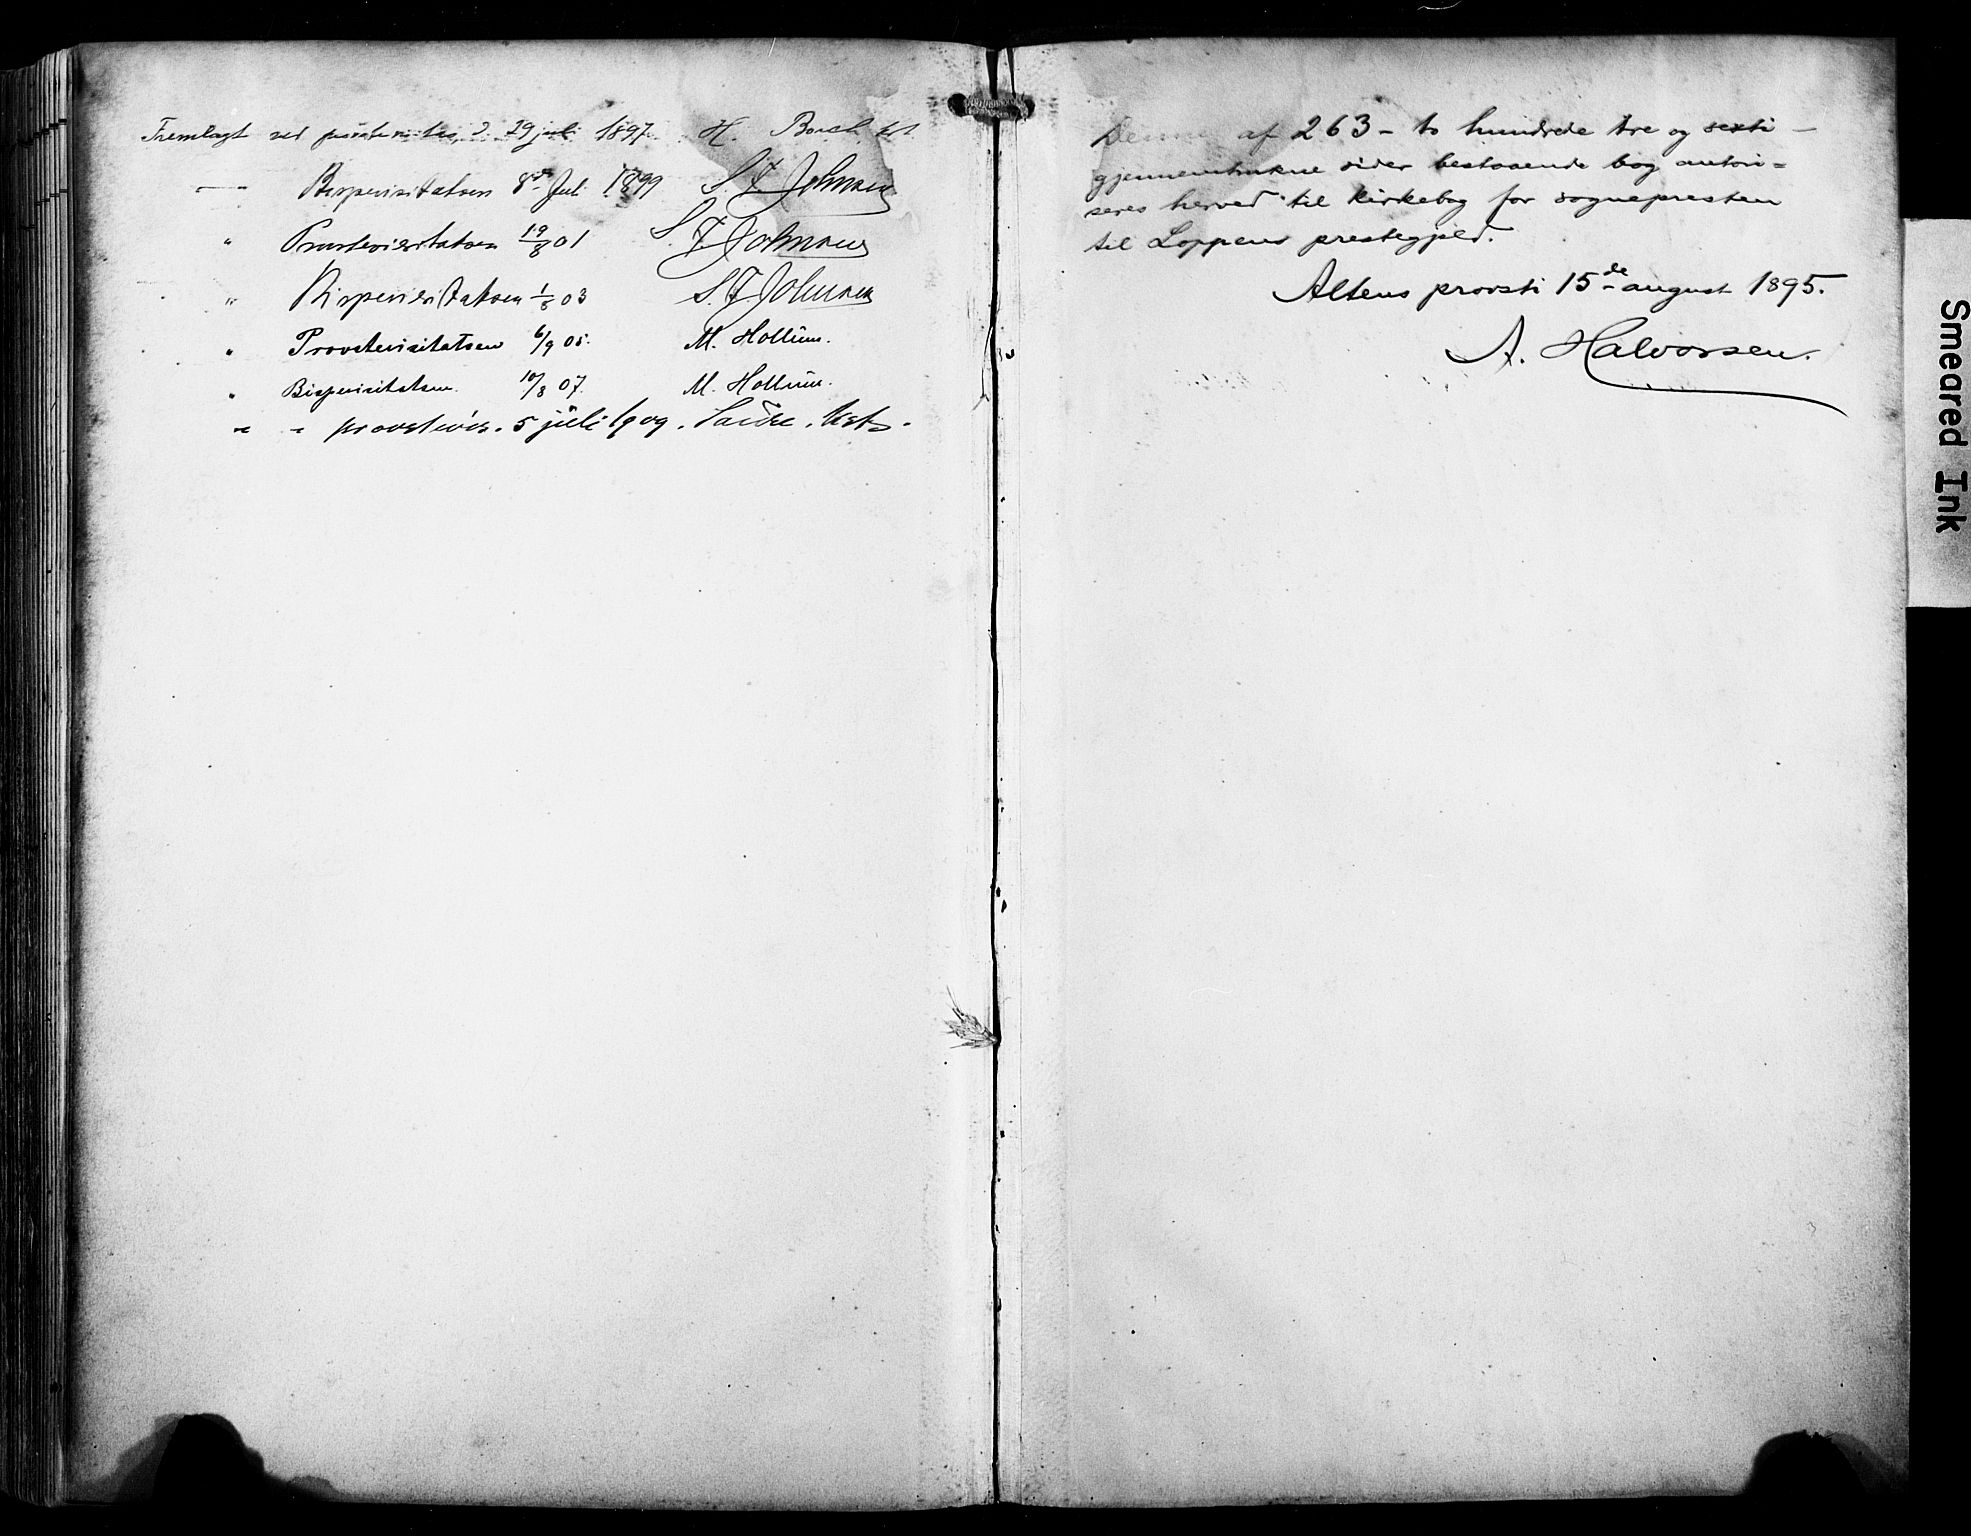 Fremlagt ved 29 juli 1897. H. Borch
— Bispevisitatsen 8de Juli 1899 S. F. Johnsen
" Provstevisitatsen 19/8 01 S. F. Johnsen
" Bispevisitatsen 1/8 03 S. F. Johnsen
" Provstevisitatsen 6/9 05. M. Hollum.
" Bispevisitatsen. 10/8 07. M. Hollum.
" " provstevis. 5 juli 1909.
Denne af 263 - to hundrede tre og sexti -
gjennemtrukne sider bestaaende bog autori=
seres herved til kirkebog for sognepresten
til Loppens prestegjeld.
Altens provsti 15de august 1895.
A. Halvorsen.
Smeared Ink